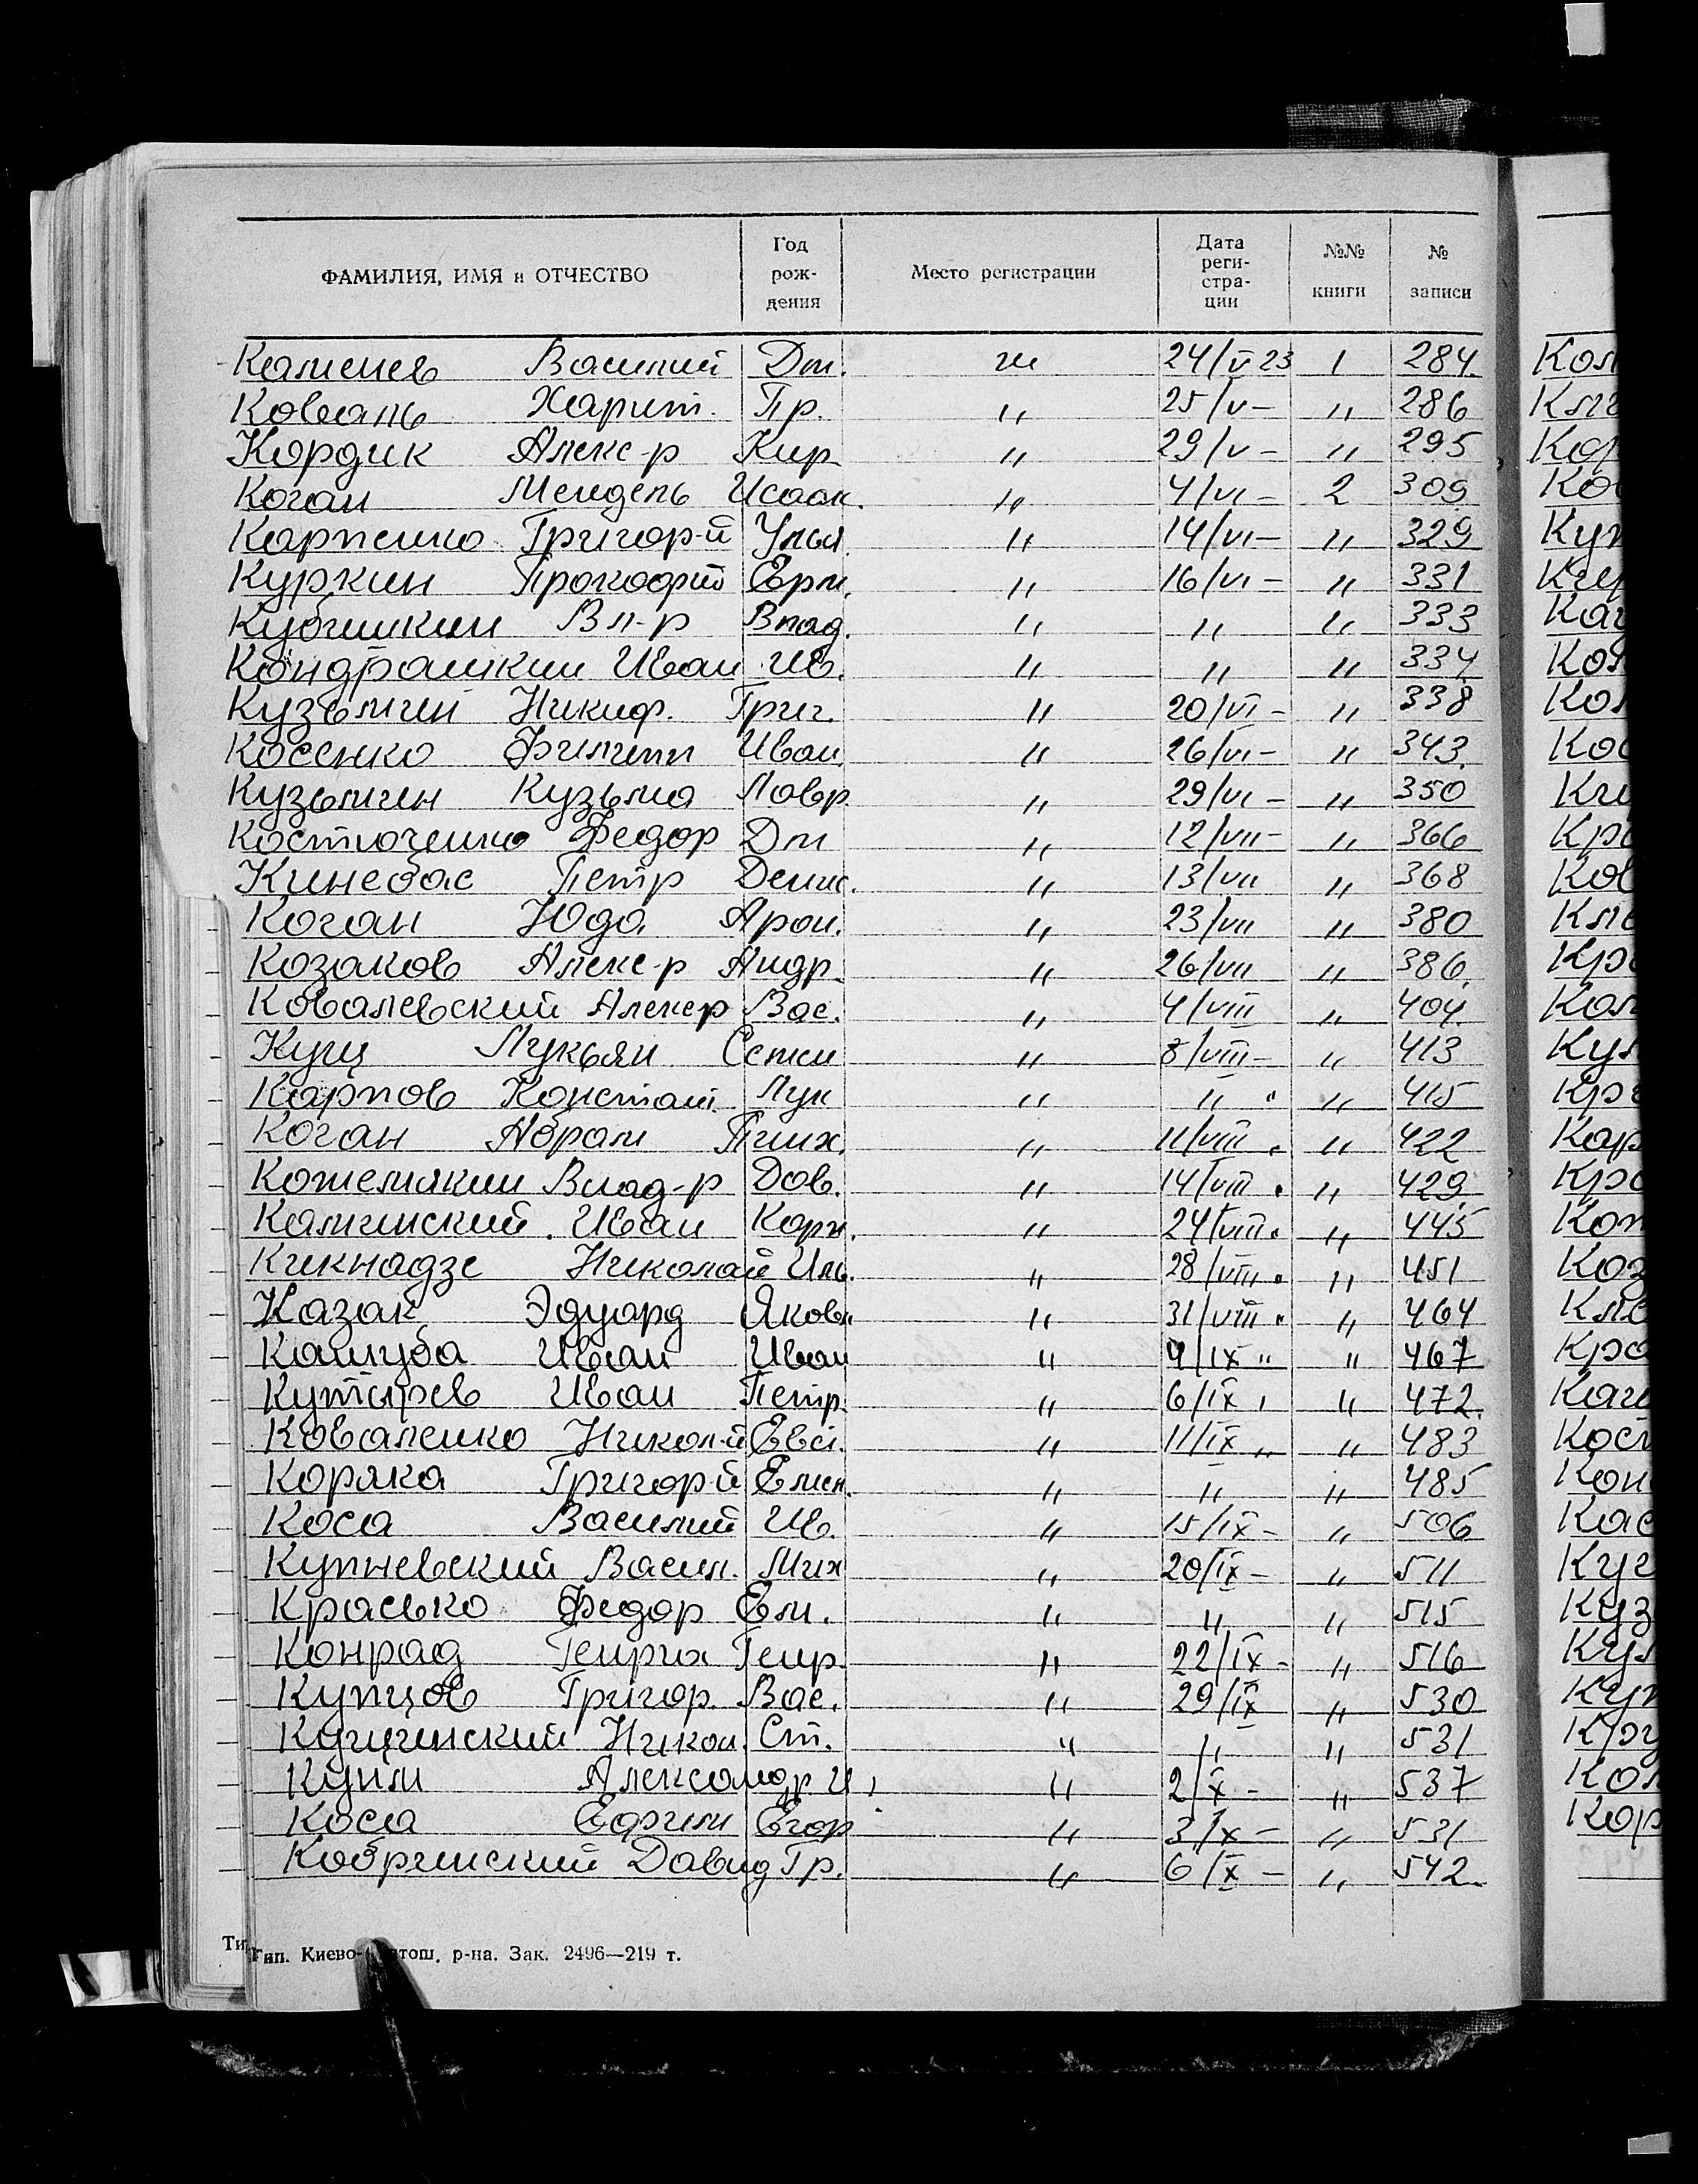 ФАМИЛИЯ, ИМЯ и ОТЧЕСТВО Год рож- дения Место регистрации Дата реги- стра- ции №№ книги № записи
Каменев Василий Дм. ж 24/V 23 1 284.
Ковань Харит. Пр. " 25/V - " 286
Кордик Алекс-р Кир. " 29/V - " 295
Коган Мендель Исаак. " 4/VI - 2 309
Карпенко Григор-й Улья. " 14/VI - " 329
Куркин Прокофий Ерм. " 16/VI - " 331
Кубышкин Вл-р Влад. " " " 333
Кондрашкин Иван Ив. " " " 334
Кузьмин Никиф. Григ. " 20/VI - " 338
Косенко Филипп Иван. " 26/VI - " 343.
Кузьмин Кузьма Лавр " 29/VI - " 350
Костюченко Федор Дм " 12/VII - " 366
Кинебас Петр Денис. " 13/VII " 368
Коган Юда Арон. " 23/VII " 380
Козаков Алекс-р Андр. " 26/VII " 386.
Ковалевский Алек-р Вас. " 4/VIII " 404.
Кущ Лукьян Семи " 8/VIII - " 413
Карпов Констант. Лук " " " " 415
Коган Абрам Пинх. " 11/VIII " " 422
Кожемякин Влад-р Дав. " 14/VIII " " 429
Калинский Иван Корн. " 24/VIII " " 445
Кикнадзе Николай Иль. " 28/VIII " " 451
Казак Эдуард Яковл " 31/VIII " " 464
Кашуба Иван Иван " 4/IX " " 467
Кутырев Иван Петр. " 6/IX " " 472.
Коваленко Никол-й Евсі. " 11/IX " " 483
Коряка Григор-й Елис. " " " 485
Коса Василий Ив. " 15/IX - " 506
Купневский Васил. Мих " 20/IX - " 511
Красько Федор Ем. " " " 515
Конрад Генрих Генр. " 22/IX - " 516
Купцов Григор. Вас. " 29/IX " 530
Кущинский Никол. Ст. " " " 531
Кулм Александр И. " 2/X - " 537
Коса Ефим Егор " 3/X - " 531
Кобринский Давид Гр. " 6/X - " 542.
Тип. Киево- р-на. Зак. 2496—219 т.